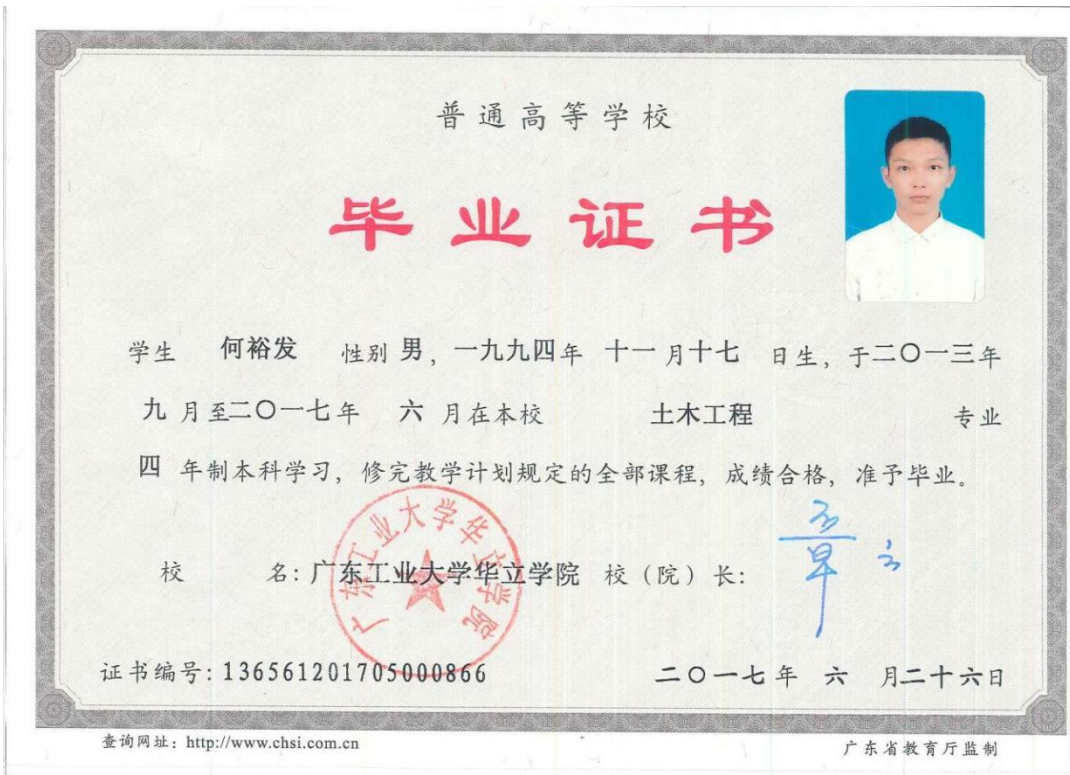 普通高等学校
毕业证书
学生 何裕发 性别 男，一九九四年 十一月十七 日生，于二〇一三年
九月至二〇一七年 六 月在本校 土木工程 专业
四 年制本科学习，修完教学计划规定的全部课程，成绩合格，准予毕业。
校 名：广东工业大学华立学院 校（院）长：
广东工业大学华立学院
证书编号：136561201705000866 二〇一七年 六 月二十六日
查询网址：http://www.chsi.com.cn 广东省教育厅监制